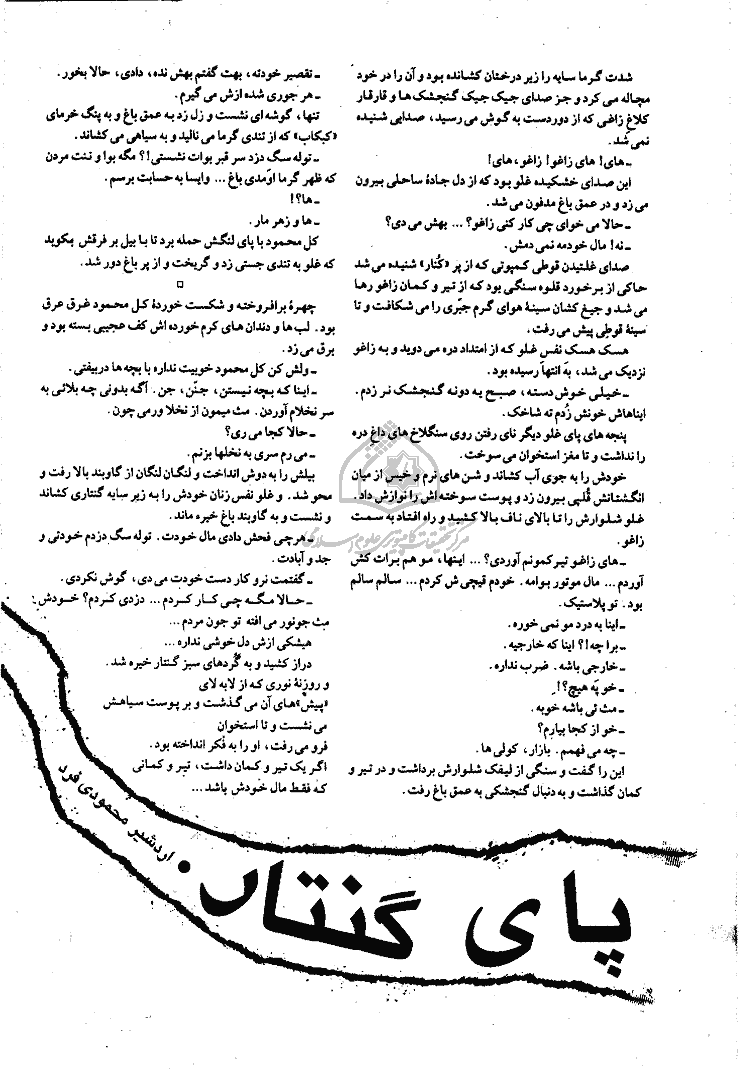 شدت گرما سایه را زیر درختان کشانده بود و آن را در خود
مچاله می کرد و جز صدای جیک جیک گنجشک ها و قارقار
کلاغ زاغی که از دوردست به گوش می رسید، صدایی شنیده
نمی شد.
ـ های! های زاغو! زاغو، های!
این صدای خشکیده غلو بود که از دل جادهٔ ساحلی بیرون
می زد و در عمق باغ مدفون می شد.
ـ حالا می خوای چی کار کنی زاغو؟ ... بهش می دی؟
ـ نه! مال خودمه نمی دمش.
صدای غلتیدن قوطی کمپوتی که از پر «کُنار» شنیده می شد
حاکی از برخورد قلوه سنگی بود که از تیر و کمان زاغو رها
می شد و جیغ کشان سینهٔ هوای گرم جبّری را می شکافت و تا
سینهٔ قوطی پیش می رفت.
هسک هسک نفس غلو که از امتداد دره می دوید و به زاغو
نزدیک می شد، به انتها رسیده بود.
ـ خیلی خوش دسته، صبح یه دونه گنجشک نر زدم.
ایناهاش خونش زُدم ته شاخک.
پنجه های پای غلو دیگر نای رفتن روی سنگلاخ های داغ دره
را نداشت و تا مغز استخوان می سوخت.
خودش را به جوی آب کشاند و شن های نرم و خیس از میان
انگشتانش قُلپی بیرون زد و پوست سوخته اش را نوازش داد.
غلو شلوارش را تا بالای ناف بالا کشید و راه افتاد به سمت
زاغو.
ـ های زاغو تیرکمونم آوردی؟ ... اینها، مو هم برات کش
آوردم ... مال موتور بوامه. خودم قیچی ش کردم ... سالم سالم
بود. تو پلاستیک.
ـ اینا به درد مو نمی خوره.
ـ برا چه!؟ اینا که خارجیه.
ـ خارجی باشه. ضرب نداره.
ـ خو په هیچ؟!
ـ مث نی باشه خوبه.
ـ خو از کجا بیارم؟
ـ چه می فهمم. بازار، کولی ها.
این را گفت و سنگی از لیفک شلوارش برداشت و در تیر و
کمان گذاشت و به دنبال گنجشکی به عمق باغ رفت.
ـ تقصیر خودته، بهت گفتم بهش نده، دادی، حالا بخور.
ـ هر جوری شده ازش می گیرم.
تنها، گوشه ای نشست و زل زد به عمق باغ و به پنگ خرمای
«کبکاب» که از تندی گرما می نالید و به سیاهی می کشاند.
ـ توله سگ دزد سر قبر بوات نشستی!؟ مگه بوا و ننت مردن
که ظهر گرما اومدی باغ ... وایسا به حسابت برسم.
ـ ها؟!
ـ ها و زهر مار.
کل محمود با پای لنگش حمله برد تا با بیل بر فرقش بکوبد
که غلو به تندی جستی زد و گریخت و از پر باغ دور شد.
□
چهرهٔ برافروخته و شکست خوردهٔ کل محمود غرق عرق
بود. لب ها و دندان های کرم خورده اش کف عجیبی بسته بود و
برق می زد.
ـ ولش کن کل محمود خوبیت نداره با بچه ها دربیفتی.
ـ اینا که بچه نیستن، جنّن، جن. اگه بدونی چه بلائی به
سر نخلام آوردن. مث میمون از نخلا ورمی چون.
ـ حالا کجا می ری؟
ـ می رم سری به نخلها بزنم.
بیلش را به دوش انداخت و لنگان لنگان از گاوبند بالا رفت و
محو شد. و غلو نفس زنان خودش را به زیر سایه گنتاری کشاند
و نشست و به گاوبند باغ خیره ماند.
ـ هرچی فحش دادی مال خودت. توله سگ دزدم خودتی و
جد و آبادت.
ـ گفتمت نرو کار دست خودت می دی، گوش نکردی.
ـ حالا مگه چی کار کردم ... دزدی کردم؟ خودش
مث جونور می افته تو جون مردم ...
هیشکی ازش دل خوشی نداره ...
دراز کشید و به گُردهای سبز گنتار خیره شد.
و روزنهٔ نوری که از لابه لای
«پیش»های آن می گذشت و بر پوست سیاهش
می نشست و تا استخوان
فرو می رفت، او را به فکر انداخته بود.
اگر یک تیر و کمان داشت، تیر و کمانی
که فقط مال خودش باشد ...
پای گنتار
• اردشیر محمودی فرد